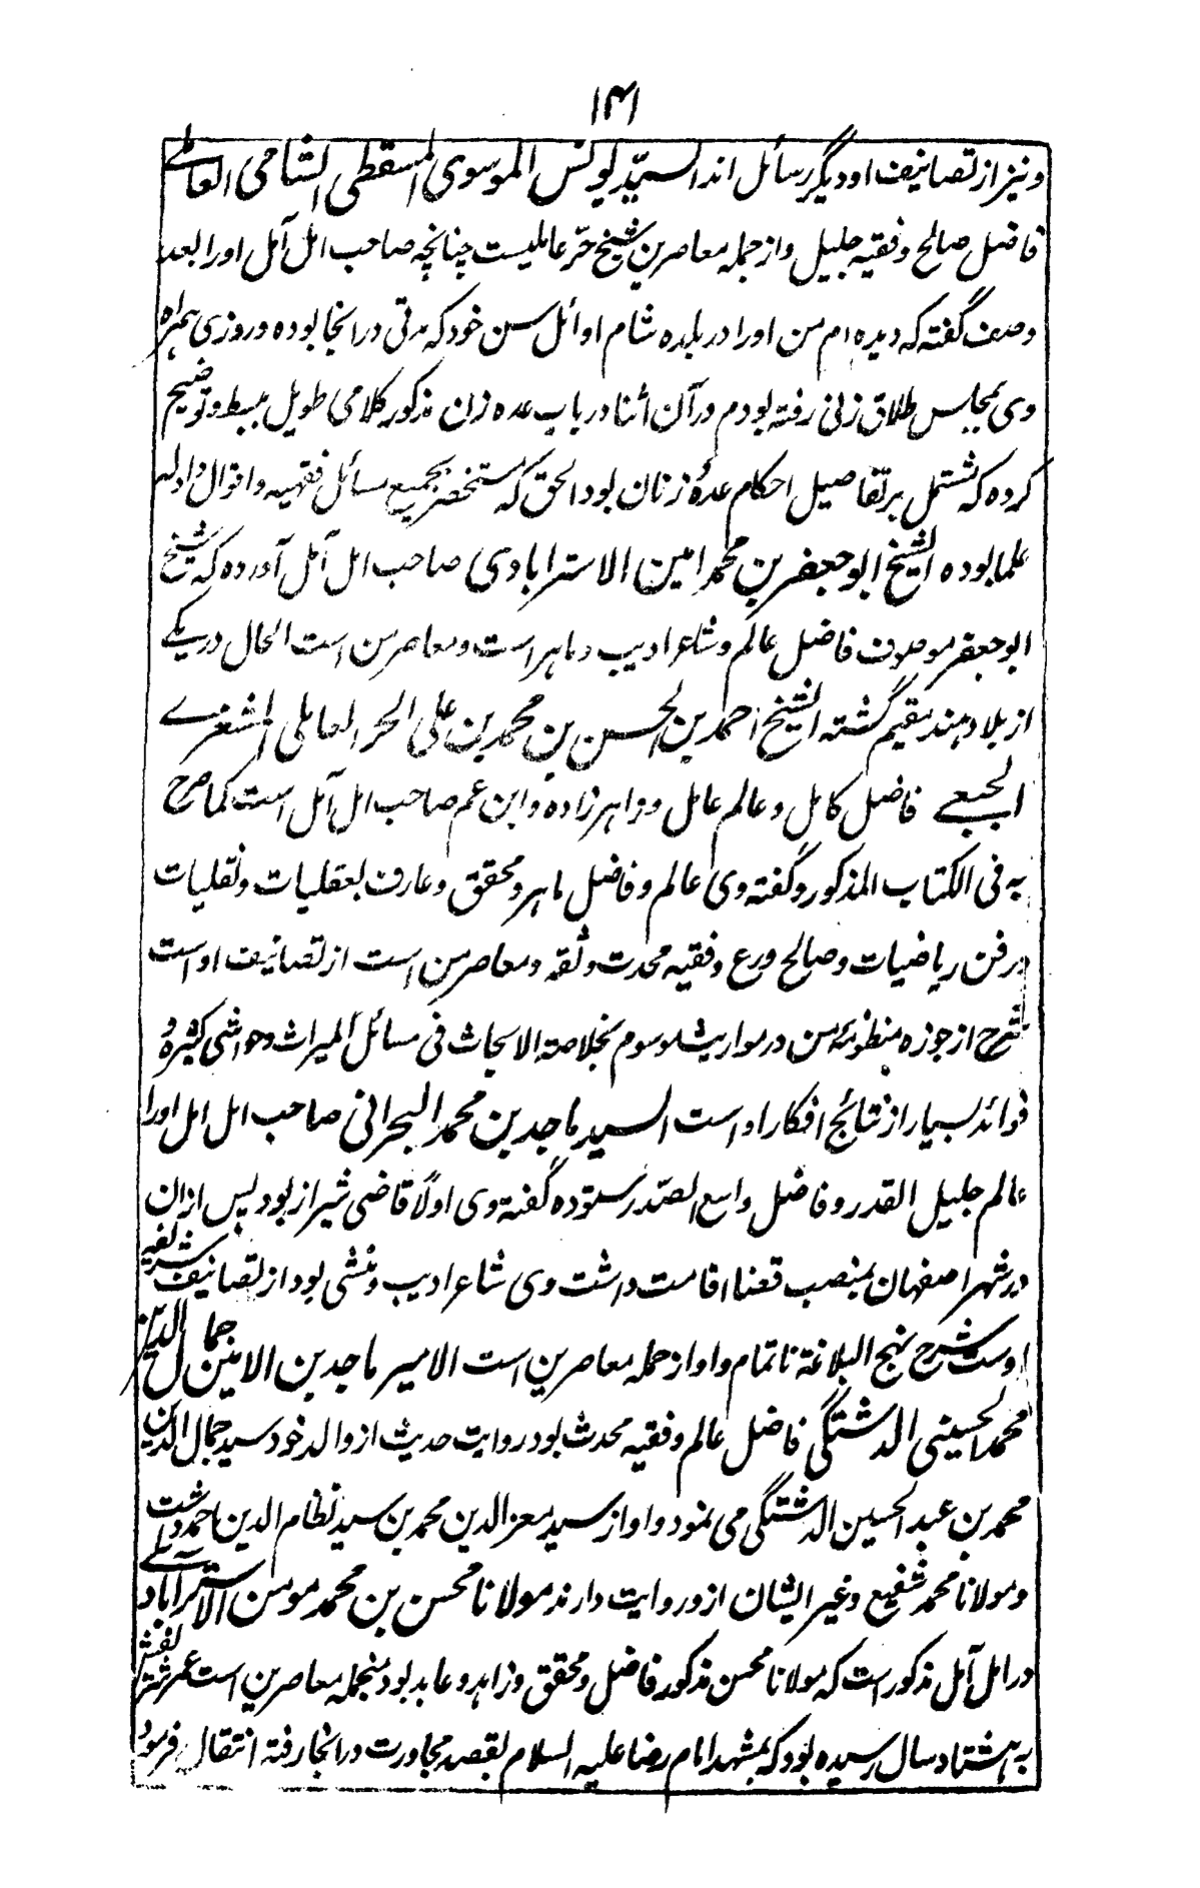 ۱۴۱
ونیز از تصانیف او دیگر رسائل اند السیّد یونس الموسوی المسقطی الشامی العاملے
فاضل صالح وفقیہ جلیل واز جملہ معاصرین شیخ حرّ عاملیست چنانچہ صاحب امل آمل اورا بعد
وصف گفتہ کہ دیدہ ام من اورا در بلدہ شام اوائل سن خود کہ مدتی در انجا بودہ وروزی ہمراہ
وی بمجلس طلاق زنی رفتہ بودم در آن اثنا در باب عدہ زن مذکور کلامی طویل ببسط وتوضیح
کردہ کہ مشتمل بر تفاصیل احکام عدۂ زنان بود الحق کہ مستحضر بجمیع مسائل فقہیہ واقوال وادلہ
علما بودہ الشیخ ابو جعفر بن محمد امین الاسترابادی صاحب امل آمل آوردہ کہ شیخ
ابو جعفر موصوف فاضل عالم وشاعر ادیب وماہر است ومعاصر من است الحال در یکے
از بلاد ہند مقیم گشتہ الشیخ احمد بن الحسن بن محمد بن علی الحر العاملی المشغرے
الجبعے فاضل کامل وعالم عامل وزاہر زادہ وابن عم صاحب امل آمل است کما صرح
بہ فی الکتاب المذکور وگفتہ وی عالم وفاضل ماہر ومحقق وعارف بعقلیات ونقلیات
در فن ریاضیات وصالح ورع وفقیہ محدث وثقہ ومعاصر من است از تصانیف اوست
شرح ارجوزہ منظومۂ من در مواریث موسوم بخلاصۃ الابحاث فی مسائل المیراث وحواشی کثیرہ و
فوائد بسیار از نتائج افکار اوست السید ماجد بن محمد البحرانی صاحب امل امل اورا
عالم جلیل القدر وفاضل واسع الصّدر ستودہ گفتہ وی اولاً قاضی شیراز بود پس ازان
در شہر اصفہان بمنصب قضا اقامت داشت وی شاعر ادیب ومنشی بود از تصانیف شریفہ
اوست شرح نہج البلاغۃ ناتمام واو از جملہ معاصرین است الامیر ماجد بن الامیر جمال الدین
محمد الحسینی الدشتگی فاضل عالم وفقیہ محدث بود روایت حدیث از والد خود سید جمال الدین
محمد بن عبد الحسین الدشتگی می نمود واو از سید معز الدین محمد بن سید نظام الدین احمد دشتکے
ومولانا محمد شفیع وغیر ایشان ازو روایت دارند مولانا محسن بن محمد مومن الاسترآبادے
در امل آمل مذکور است کہ مولانا محسن مذکور فاضل ومحقق وزاہد وعابد بود منجملہ معاصرین است عمر شریفش
بہ ہشتاد سال رسیدہ بود کہ بمشہد امام رضا علیہ السلام بقصد مجاورت در انجا رفتہ انتقال فرمود